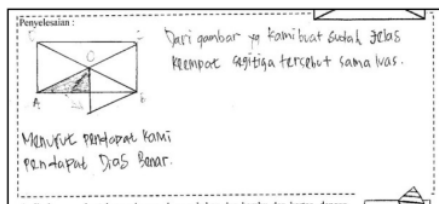 Penyelesaian :
Dari gambar yg kami buat sudah jelas
keempat segitiga tersebut sama luas.
O
A
B
Menurut pendapat kami
pendapat Dias Benar.